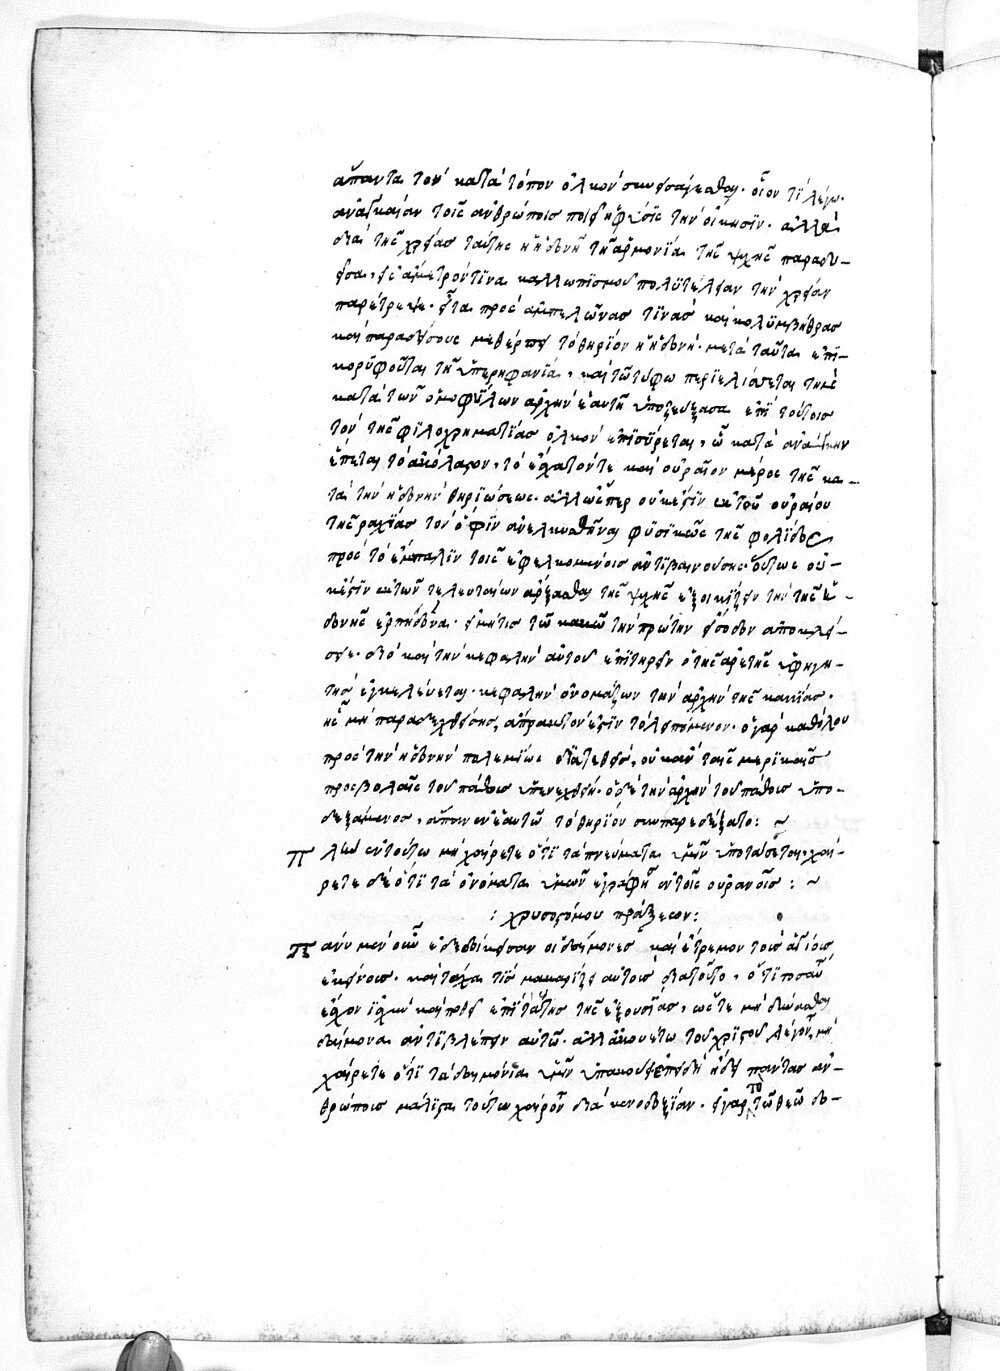 ἅπαντα τὸν κατὰ τόπον ὁλκὸν συνεισάγεσθαι. οἷον τί λέγω.
ἀναγκαίαν τοῖς ἀνθρώποις ποιεῖ ἡ φύσις τὴν οἴκησιν. ἀλλὰ
διὰ τῆς χρείας ταύτης ἡ ἡδονὴ τῇ ἁρμονίᾳ τῆς ψυχῆς παραδυ-
εῖσα, εἰς ἀμετρόν τινα καλλωπισμοῦ πολυτέλειαν τὴν χρείαν
παρέτρεψε. εἶτα πρὸς ἀμπελῶνας τινὰς καὶ κολυμβήθρας
καὶ παραδείσους μεθέρπει τὸ θηρίον ἡ ἡδονή. μετὰ ταῦτα ἐπι-
κορυφοῦται τῇ ὑπερηφανίᾳ, καὶ τῶ τύφω περιελίσσεται τὴν
κατὰ τῶν ὁμοφύλων ἀρχὴν ἑαυτῇ ὑποζεύξασα ἐπὶ τούτοις
τὸν τῆς φιλοχρηματίας ὁλκὸν ἐπισύρεται, ὧ κατὰ ἀνάγκην
ἕπεται τὸ ἀκόλαστον, τὸ ἔσχατόν τε καὶ οὐραῖον μέρος τῆς κα-
τὰ τὴν ἡδονὴν θηριώσεως. ἀλλ' ὥσπερ οὐκ ἔστιν ἐκ τοῦ οὐραίου
τῆς ῥαχίας τὸν ὄφιν ἀνελκυσθῆναι φυσικῶς τῆς φολίδος
πρὸς τὸ ἔμπαλιν τοῖς ἐφελκομένοις ἀντιβαινούσης. οὕτως οὐ-
κ ἔστιν ἐκ τῶν τελευταίων ἄρξασθαι τῆς ψυχῆς ἐξοικίζειν τὴν τῆς ἡ-
δονῆς ἑρπηδόνα. εἰ μή τις τῶ κακῶ τὴν πρώτην εἴσοδον ἀποκλεί-
σειε. διὸ καὶ τὴν κεφαλὴν αὐτοῦ ἐπιτηρεῖν ὁ τῆς ἀρετῆς ὑφηγη-
τὴς ἐγκελεύεται. κεφαλὴν ὀνομάζων τὴν ἀρχὴν τῆς κακίας.
ἧς μὴ παραδεχθείσης, ἄπρακτον ἐστὶν τὸ λειπόμενον. ὁ γὰρ καθόλου
πρὸς τὴν ἡδονὴν πολεμίως διατεθεὶς, οὐκ ἂν ταῖς μερικαῖς
προσβολαῖς τοῦ πάθους ὑπενεχθείη. ὁ δὲ τὴν ἀρχὴν τοῦ πάθους ὑπο-
δεξάμενος, ἅπαν ἐν ἑαυτῶ τὸ θηρίον συμπαρεδέξατο: ~
Πλὴν ἐν τούτω μὴ χαίρετε ὅτι τὰ πνεύματα ὑμῖν ὑποτάσσεται, χαί-
ρετε δὲ ὅτι τὰ ὀνόματα ὑμῶν ἐγράφη ἐν τοῖς οὐρανοῖς: ~
: χρυσοστόμου πράξεων:
Πάνυ μὲν οὖν ἐδεδοίκεισαν οἱ δαίμονες καὶ ἔτρεμον τοὺς ἁγίους
ἐκείνους. καὶ τάχα τίς μακαρίζει αὐτοὺς διὰ τοῦτο, ὅτι τοσαύ
εἶχον ἰσχὺν καὶ ἐπὶ τῆς ἐξουσίας, ὥστε μὴ δύνασθαι
δαίμονα ἀντιβλέπειν αὐτῶ. ἀλλ' ἀκουέτω τοῦ χριστοῦ λέγοντος, μὴ
χαίρετε ὅτι τὰ δαιμόνια ὑμῖν ὑπακούει ἐπειδὴ ἤδει πάντας ἀν-
θρώπους μάλιστα τούτω χαίρον διὰ κενοδοξίαν. εἰ γὰρ τὸ τῶ θεῶ δο-